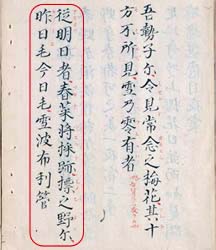 吾勢子尓令見常念之梅花其十
方不所見雪乃零有者
從明日者春菜將採跡標之野尓
昨日毛今日毛雪波布利管